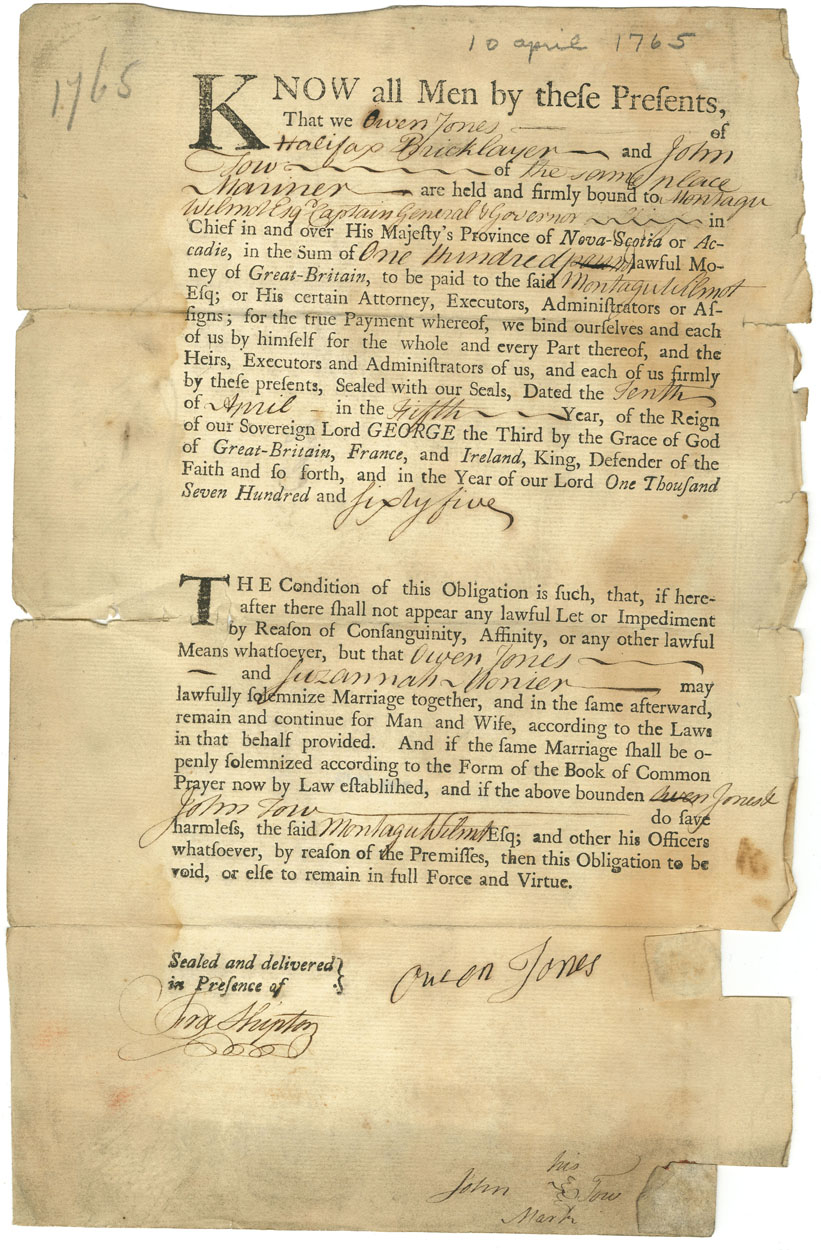 10 april 1765
1765
KNOW all Men by theſe Preſents,
That we Owen Jones of
Halifax Bricklayer and John
Tow of the same place
Mariner are held and firmly bound to Montagu
Wilmot Esqr Captain General & Governor in
Chief in and over His Majeſty's Province of Nova-Scotia or Ac-
cadie, in the Sum of One Hundred pounds lawful Mo-
ney of Great-Britain, to be paid to the ſaid Montagu Wilmot
Eſq; or His certain Attorney, Executors, Adminiſtrators or Aſ-
ſigns; for the true Payment whereof, we bind ourſelves and each
of us by himſelf for the whole and every Part thereof, and the
Heirs, Executors and Adminiſtrators of us, and each of us firmly
by theſe preſents, Sealed with our Seals, Dated the Tenth
of April in the fifth Year, of the Reign
of our Sovereign Lord GEORGE the Third by the Grace of God
of Great-Britain, France, and Ireland, King, Defender of the
Faith and ſo forth, and in the Year of our Lord One Thouſand
Seven Hundred and sixty five
THE Condition of this Obligation is ſuch, that, if here-
after there ſhall not appear any lawful Let or Impediment
by Reaſon of Conſanguinity, Affinity, or any other lawful
Means whatſoever, but that Owen Jones
and Suzannah Monier may
lawfully ſolemnize Marriage together, and in the ſame afterward,
remain and continue for Man and Wife, according to the Laws
in that behalf provided. And if the ſame Marriage ſhall be o-
penly ſolemnized according to the Form of the Book of Common
Prayer now by Law eſtabliſhed, and if the above bounden Owen Jones &
John Tow do ſave
harmleſs, the ſaid Montagu Wilmot Eſq; and other his Officers
whatſoever, by reaſon of the Premiſſes, then this Obligation to be
void, or elſe to remain in full Force and Virtue.
Sealed and delivered
in Preſence of
Owen Jones
Shipton
his
John Tow
Mark